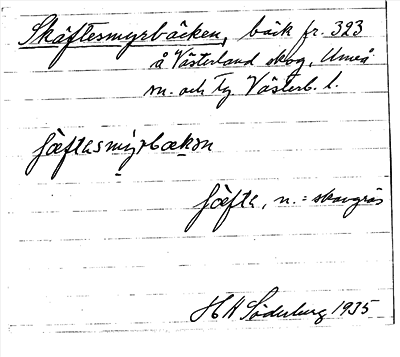 Skäftesmyrbäcken, bäck fr. 323
å Västerland skog, Umeå
sn. och tg Västerb. l.
ʃæftasmyrbækən
ʃæfta, n. = skavgräs
H H Söderberg 1935